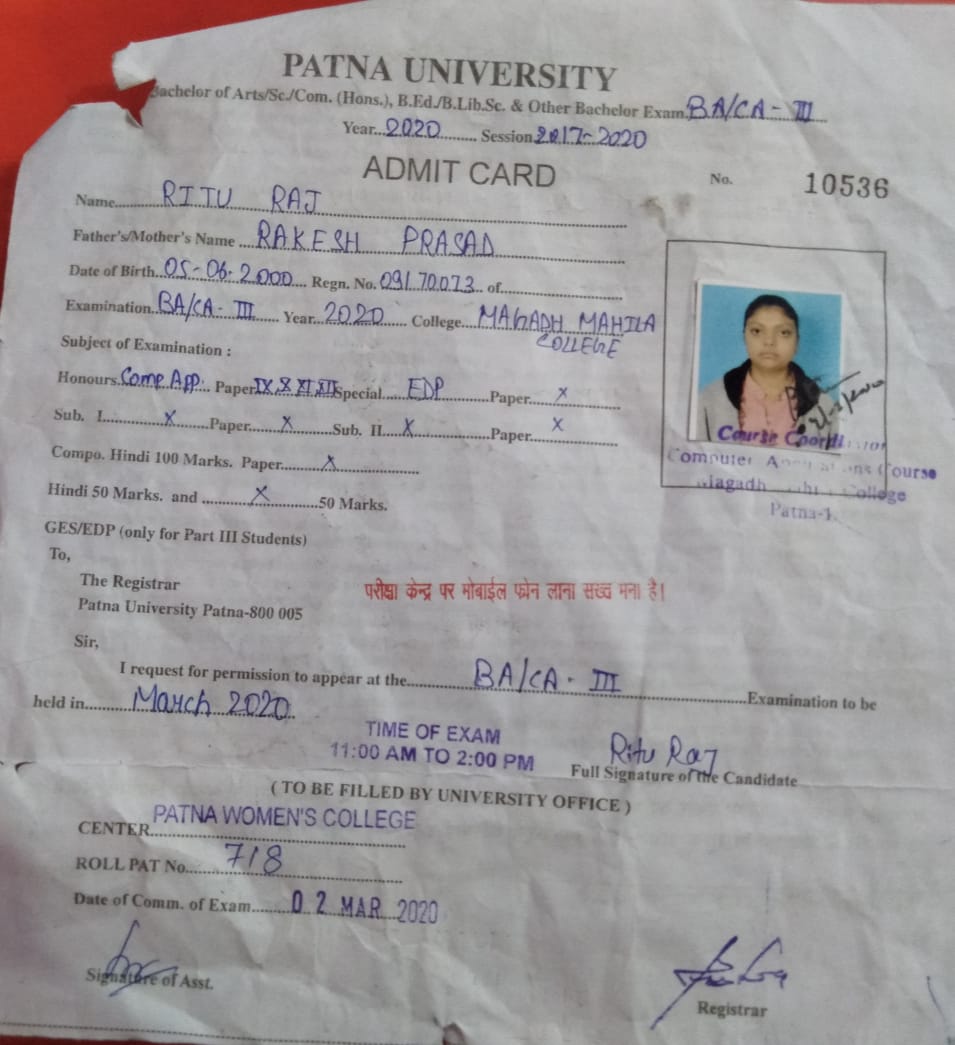 PATNA UNIVERSITY
Bachelor of Arts/Sc./Com. (Hons.), B.Ed./B.Lib.Sc. & Other Bachelor Exam. BA/CA - III
Year...2020......... Session 2017-2020
ADMIT CARD
No. 10536
Name......... RITU RAJ
Father's/Mother's Name .... RAKESH PRASAD
Date of Birth..05-06-2000.... Regn. No. 09170073.. of........
Examination..BA/CA - III...... Year...2020...... College....MAGADH MAHILA
COLLEGE
Subject of Examination :
Honours.Comp. App... Paper IX, X XI XII Special..... EDP ........Paper.... x
Sub. I........... x ......Paper...... x ......Sub. II... x ...........Paper..... x
Compo. Hindi 100 Marks. Paper....... x ...........
Hindi 50 Marks. and .......... x ..........50 Marks.
GES/EDP (only for Part III Students)
Course Coordinator
Computer Course
College
Patna-1.
To,
The Registrar
Patna University Patna-800 005
परीक्षा केन्द्र पर मोबाईल फोन लाना सख्त मना है।
Sir,
I request for permission to appear at the........... BA/CA - III ...........Examination to be
held in......... March 2020.
TIME OF EXAM
11:00 AM TO 2:00 PM
Ritu Raj
Full Signature of the Candidate
( TO BE FILLED BY UNIVERSITY OFFICE )
CENTER PATNA WOMEN'S COLLEGE
ROLL PAT No....... 718
Date of Comm. of Exam......... 02 MAR 2020
Signature of Asst.
Registrar